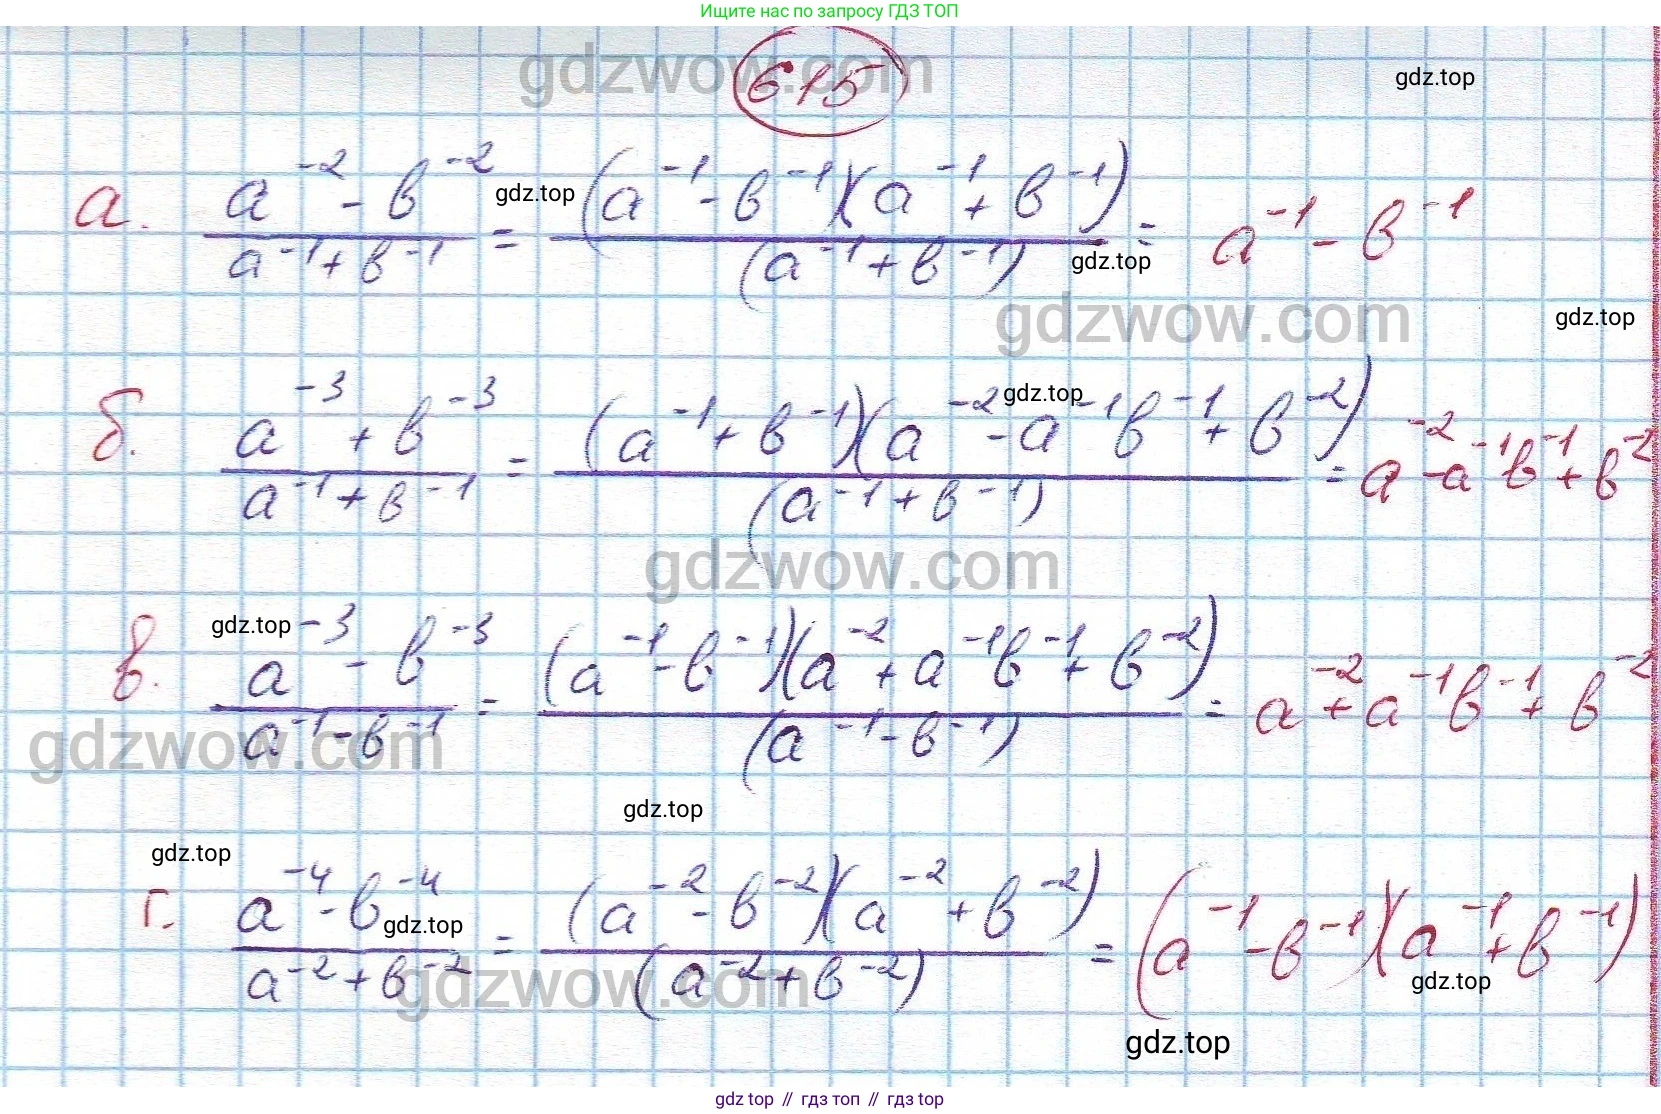 Ищите нас по запросу ГДЗ ТОП
gdzwow.com
615
gdz.top
а. (a⁻² - b⁻²)/(a⁻¹ + b⁻¹) = ((a⁻¹ - b⁻¹)(a⁻¹ + b⁻¹))/((a⁻¹ + b⁻¹)) = a⁻¹ - b⁻¹
gdz.top
gdz.top
gdzwow.com
gdz.top
б. (a⁻³ + b⁻³)/(a⁻¹ + b⁻¹) = ((a⁻¹ + b⁻¹)(a⁻² - a⁻¹b⁻¹ + b⁻²))/((a⁻¹ + b⁻¹)) = a⁻² - a⁻¹b⁻¹ + b⁻²
gdz.top
gdzwow.com
в. (a⁻³ - b⁻³)/(a⁻¹ - b⁻¹) = ((a⁻¹ - b⁻¹)(a⁻² + a⁻¹b⁻¹ + b⁻²))/((a⁻¹ - b⁻¹)) = a⁻² + a⁻¹b⁻¹ + b⁻²
gdz.top
gdzwow.com
gdz.top
gdz.top
г. (a⁻⁴ - b⁻⁴)/(a⁻² + b⁻²) = ((a⁻² - b⁻²)(a⁻² + b⁻²))/((a⁻² + b⁻²)) = (a⁻¹ - b⁻¹)(a⁻¹ + b⁻¹)
gdz.top
gdz.top
gdzwow.com
gdz.top
gdz top // гдз топ // гдз top